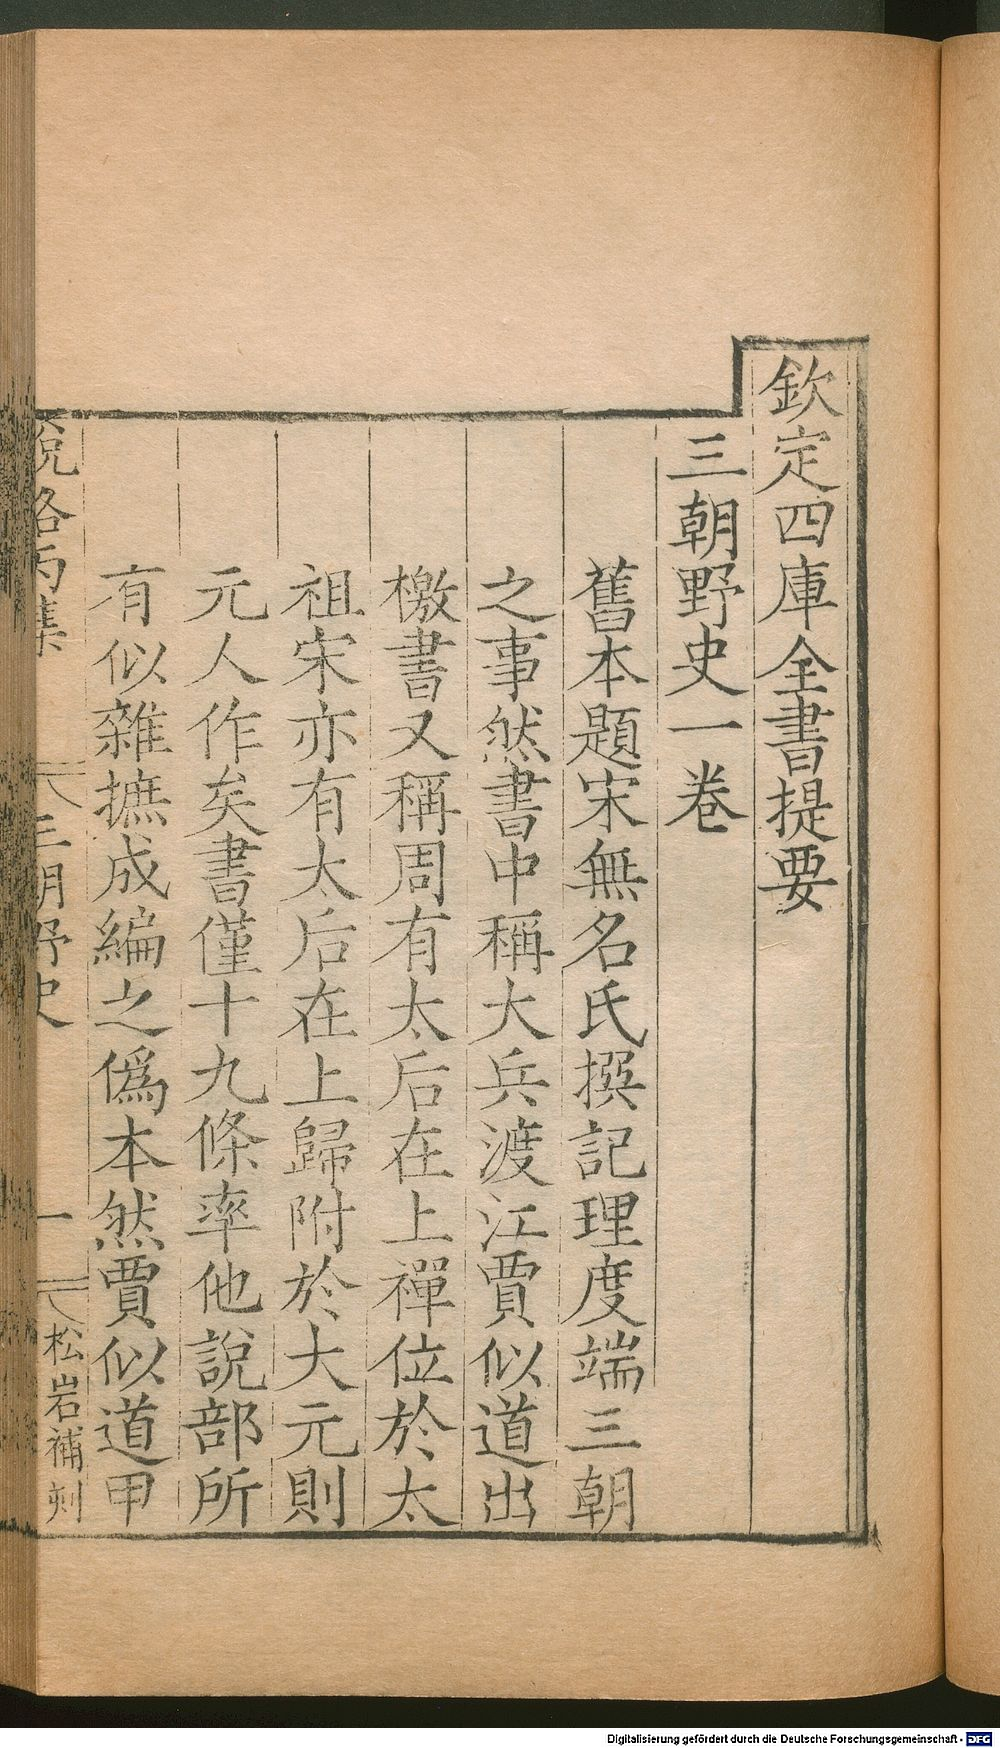 欽定四庫全書提要
三朝野史一卷
舊本題宋無名氏撰記理度端三朝
之事然書中稱大兵渡江賈似道出
檄書又稱周有太后在上禪位於太
祖宋亦有太后在上歸附於大元則
元人作矣書僅十九條率他說部所
有似雜摭成編之僞本然賈似道甲
說鈴丙集 三朝野史 一 松岩補刻
Digitalisierung gefördert durch die Deutsche Forschungsgemeinschaft - DFG